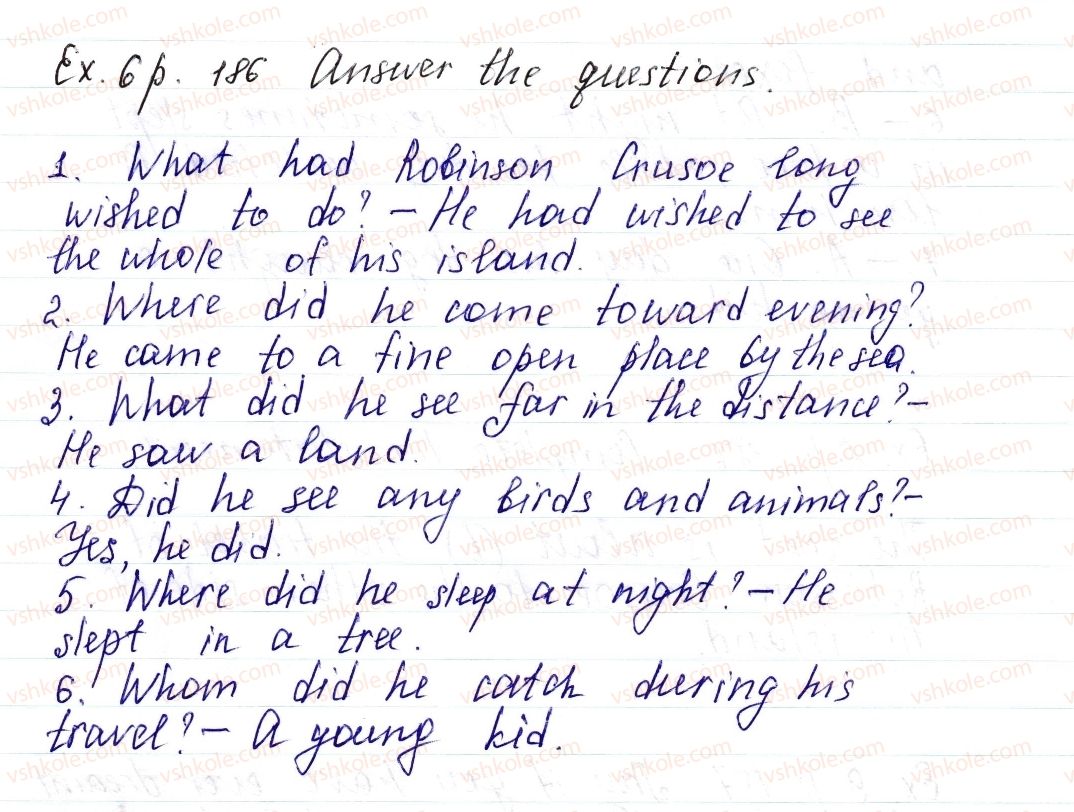 Ex. 6 p. 186 Answer the questions.
1. What had Robinson Crusoe long
wished to do? – He had wished to see
the whole of his island.
2. Where did he come toward evening?
He came to a fine open place by the sea.
3. What did he see far in the distance? –
He saw a land.
4. Did he see any birds and animals? –
Yes, he did.
5. Where did he sleep at night? – He
slept in a tree.
6. Whom did he catch during his
travel? – A young kid.